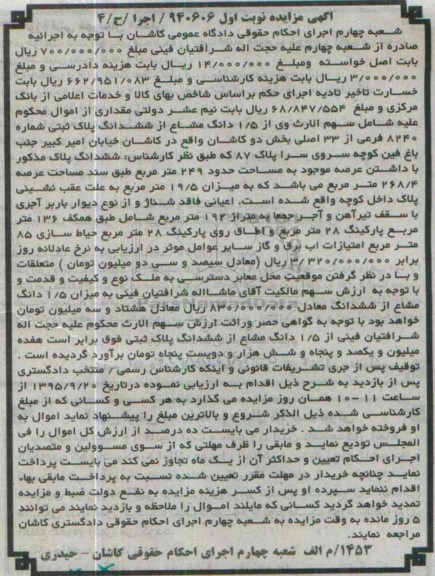 آگهی مزایده نوبت اول ۹۴۰۶۰۶ / اجرا / ح/۴
شعبه چهارم اجرای احکام حقوقی دادگاه عمومی کاشان بـا توجه به اجرائیه
صادره از شـعبه چهارم علیه حجت اله شـرافتیان فینی مبلغ ۷۰۰/۰۰۰/۰۰۰ ریال
بابت اصل خواسـته ومبلـغ ۱۴/۰۰۰/۰۰۰ ریال بابت هزینه دادرسـی و مبلغ
۳/۰۰۰/۰۰۰ ریـال بابت هزینه کارشناسـی و مبلـغ ۶۶۲/۹۵۱/۰۸۳ ریـال بابت
خسـارت تاخیر تادیه اجرای حکم براساس شاخص بهای کالا و خدمات اعلامی از بانک
مرکزی و مبلغ ۶۸/۸۴۷/۵۵۴ ریال بابت نیم عشـر دولتی مقداری از اموال محکوم
علیه شـامل سـهم الارث وی از ۱/۵ دانگ مشـاع از ششـدانگ پلاک ثبتی شماره
۸۲۴۰ فرعی از ۳۳ اصلی بخش دو کاشـان واقع در کاشـان خیابان امیر کبیر جنب
باغ فین کوچه سـروی سـرا پلاک ۸۷ که طبق نظر کارشناس: ششدانگ پلاک مذکور
با داشـتن عرصه موجود به مسـاحت حدود ۲۴۹ متر مربع طبق سند مساحت عرصه
۲۶۸/۴ متـر مربع می باشـد که به میـزان ۱۹/۵ متر مربع به علت عقب نشـینی
پلاک داخل کوچه واقع شـده اسـت. اعیانی فاقد شـناژ و از نوع دیوار باربر آجری
با سـقف تیرآهن و آجـر جمعا به متراژ ۱۹۲ متر مربع شـامل طبق همکف ۱۳۶ متر
مربـع پارکینگ ۲۸ متر مربع و اطـاق روی پارکینگ ۲۸ متر مربع حیاط سـازی ۸۵
متـر مربع امتیازات اب برق و گاز سـایر عوامل موثر در ارزیابی به نرخ عادلانه روز
برابر ۳/۳۲۰/۰۰۰/۰۰۰ ریال (معادل سیصد و سـی دو میلیون تومان ) متعلقات
و بـا در نظر گرفتن موقعیت محل معابر دسترسـی به ملـک نوع و کیفیت و قدمت و
با توجه به ارزش سـهم مالکیت آقای ماشـااله شرافتیان فینی به میزان ۱/۵ دانگ
مشاع از ششدانگ معادل ۸۳۰/۰۰۰/۰۰۰ ریال معادل هشتاد و سه میلیون تومان
خواهد بود با توجه به گواهی حصر وراثت ارزش سـهم الارث محکوم علیه حجت اله
شـرافتیان فینی از ۱/۵ دانگ مشـاع از ششدانگ پلاک ثبتی فوق برابر است هفده
میلیون و یکصد و پنجاه و شـش هزار و دویسـت پنجاه تومان برآورد گردیده است .
توقیف پس از جری تشـریفات قانونی و اینکه کارشـناس رسمی/ منتخب دادگستری
پس از بازدید به شـرح ذیل اقـدام بـه ارزیابی نمـوده درتاریخ ۱۳۹۵/۹/۲۰ از
ساعت ۱۱-۱۰ همـان روز مزایده می گذارد به هر کسـی و کسـانی که از مبلغ
کارشناسـی شـده ذیل الذکر شـروع و بالاترین مبلغ را پیشـنهاد نماید اموال به
او فروخته خواهد شـد . خریـدار می بایسـت ده درصد از ارزش کل اموال را فی
المجلس تودیع نمایـد و مابقی را ظرف مهلتی که از سـوی مسـوولین و متصدیان
اجرای احـکام تعیین و حداکثر آن از یک ماه تجاوز نمی کند می بایسـت پرداخت
نمایـد چنانچه خریدار در مهلت مقرر تعیین شـده نسـبت به پرداخت مابقی بهاء
اقدام ننماید سـپرده او پس از کسـر هزینه مزایده به نفـع دولت ضبط و مزایده
تمدید خواهد گردید کسـانی که مایلند امـوال را ملاحظه و بازدید نمایند می توانند
۵ روز مانده به وقت مزایده به شـعبه چهارم اجرای احکام حقوقی دادگستری کاشان
مراجعه نمایند.
۱۴۵۳/م الف شعبه چهارم اجرای احکام حقوقی کاشان – حیدری